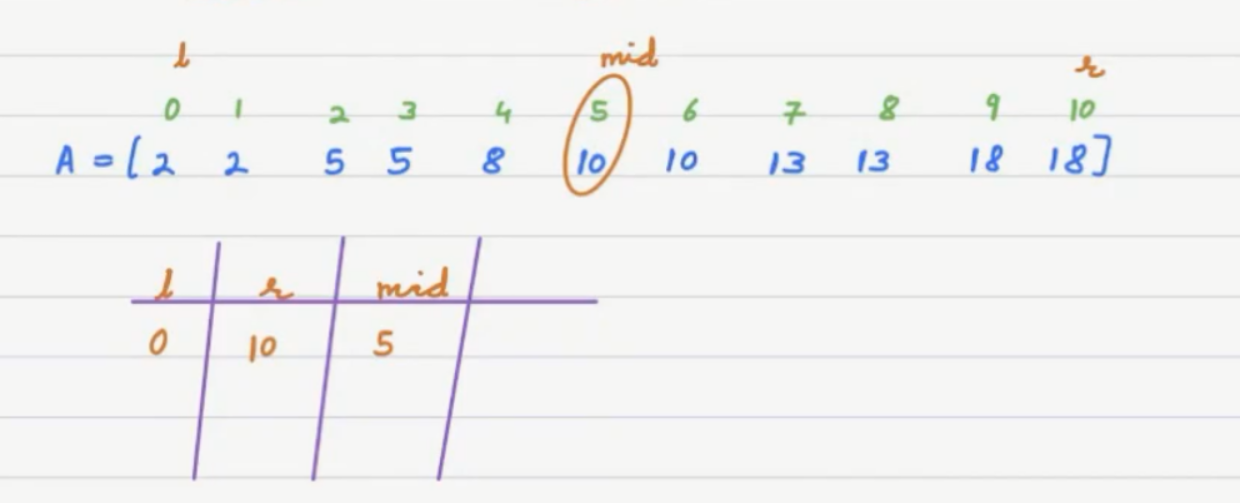 l mid r
0 1 2 3 4 5 6 7 8 9 10
A = [ 2 2 5 5 8 10 10 13 13 18 18 ]
l r mid
0 10 5